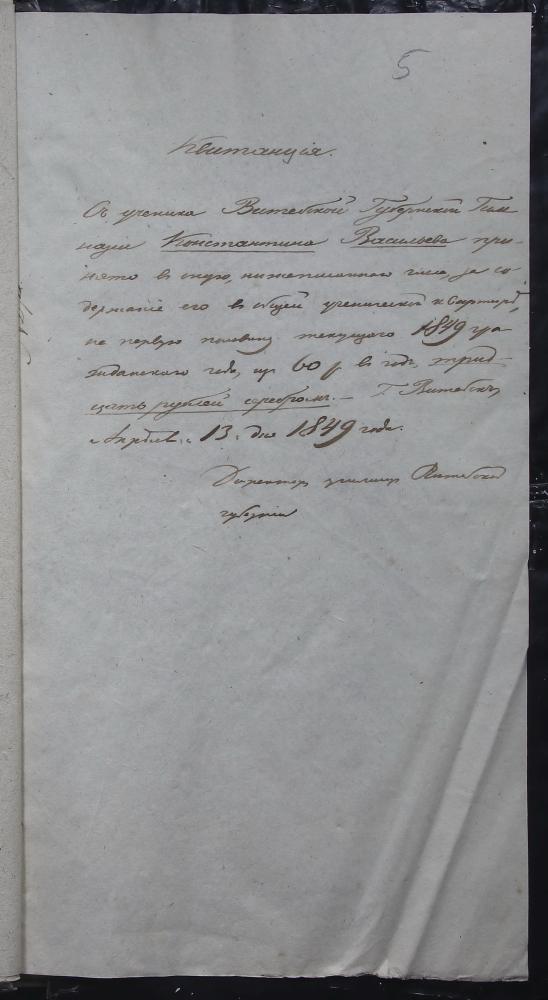 5
Квитанція.
Съ ученика Витебской Губернской Гим
назіи Константина Васильева при-
нято въ оную, нижеписаннаго числа, за со
держаніе его въ общей ученической квартирѣ,
на первую половину текущаго 1849 гра
жданскаго года, по 60 р. въ годъ, трид-
цать рублей серебромъ. — Г. Витебскъ,
Апрѣля 13 дня 1849 года.
Директоръ училищъ Витебской
губерніи